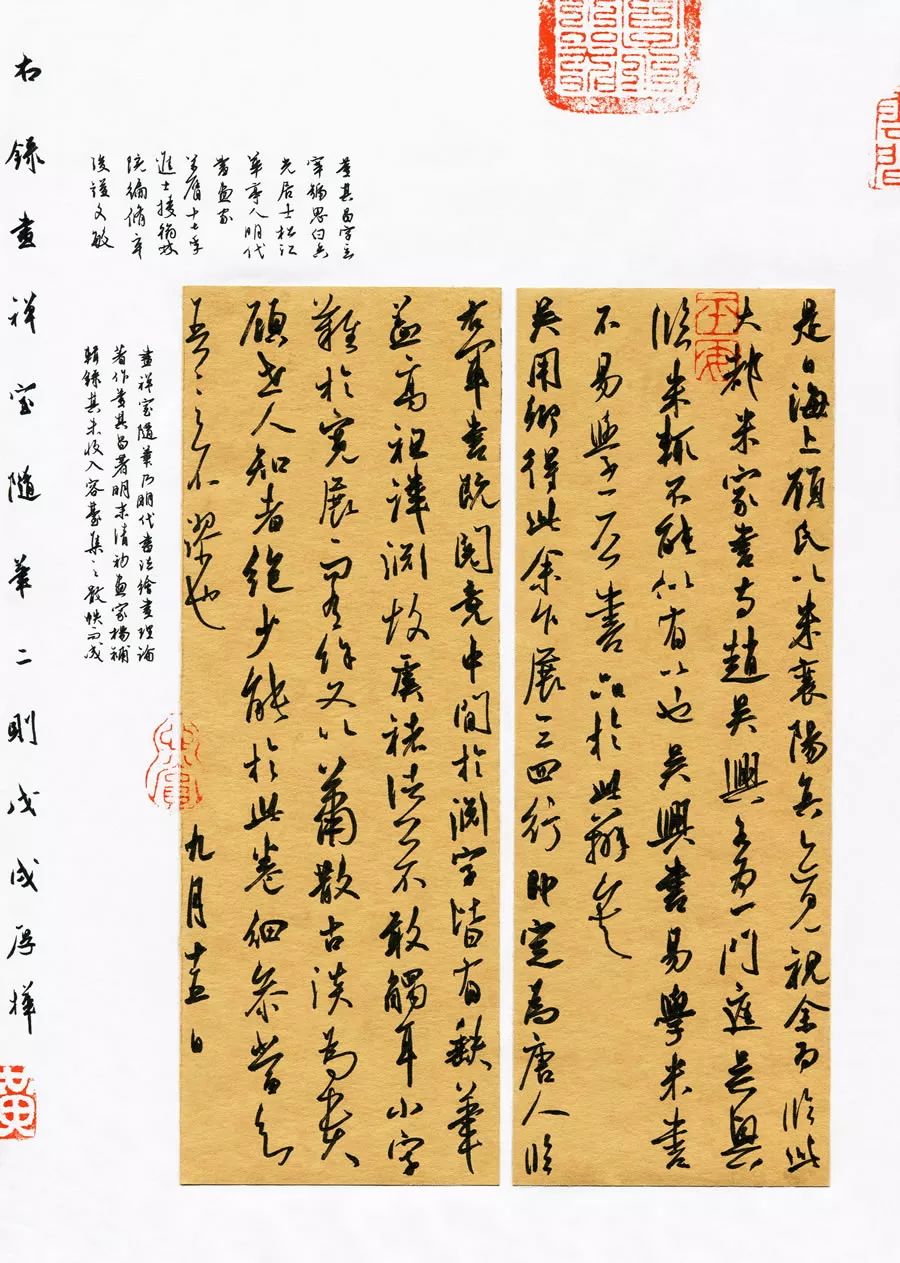 是日海上顧氏以米襄陽真迹見視余為臨此
大都米家書與趙吳興各為一門庭吳興
臨米輒不能似有以也吳興書易學米書
不易學二君書品於此辨矣
吳用卿得此余乍展三四行即定為唐人臨
右軍書既閱竟中間於淵字皆有缺筆
蓋高祖諱淵故虞褚諸公不敢觸耳小字
難於寬展而有餘又以蕭散古淡為貴
顧世人知者絕少能於此卷細參當知
吾言之不謬也
九月十五日
董其昌字玄
宰號思白香
光居士松江
華亭人明代
書畫家
萬曆十七年
進士授翰林
院編修卒
後謚文敏
畫禪室隨筆乃明代書法繪畫理論
著作董其昌著明末清初畫家楊補
輯錄其未收入容臺集之散帙而成
右錄畫禪室隨筆二則戊戌厚樺
黃